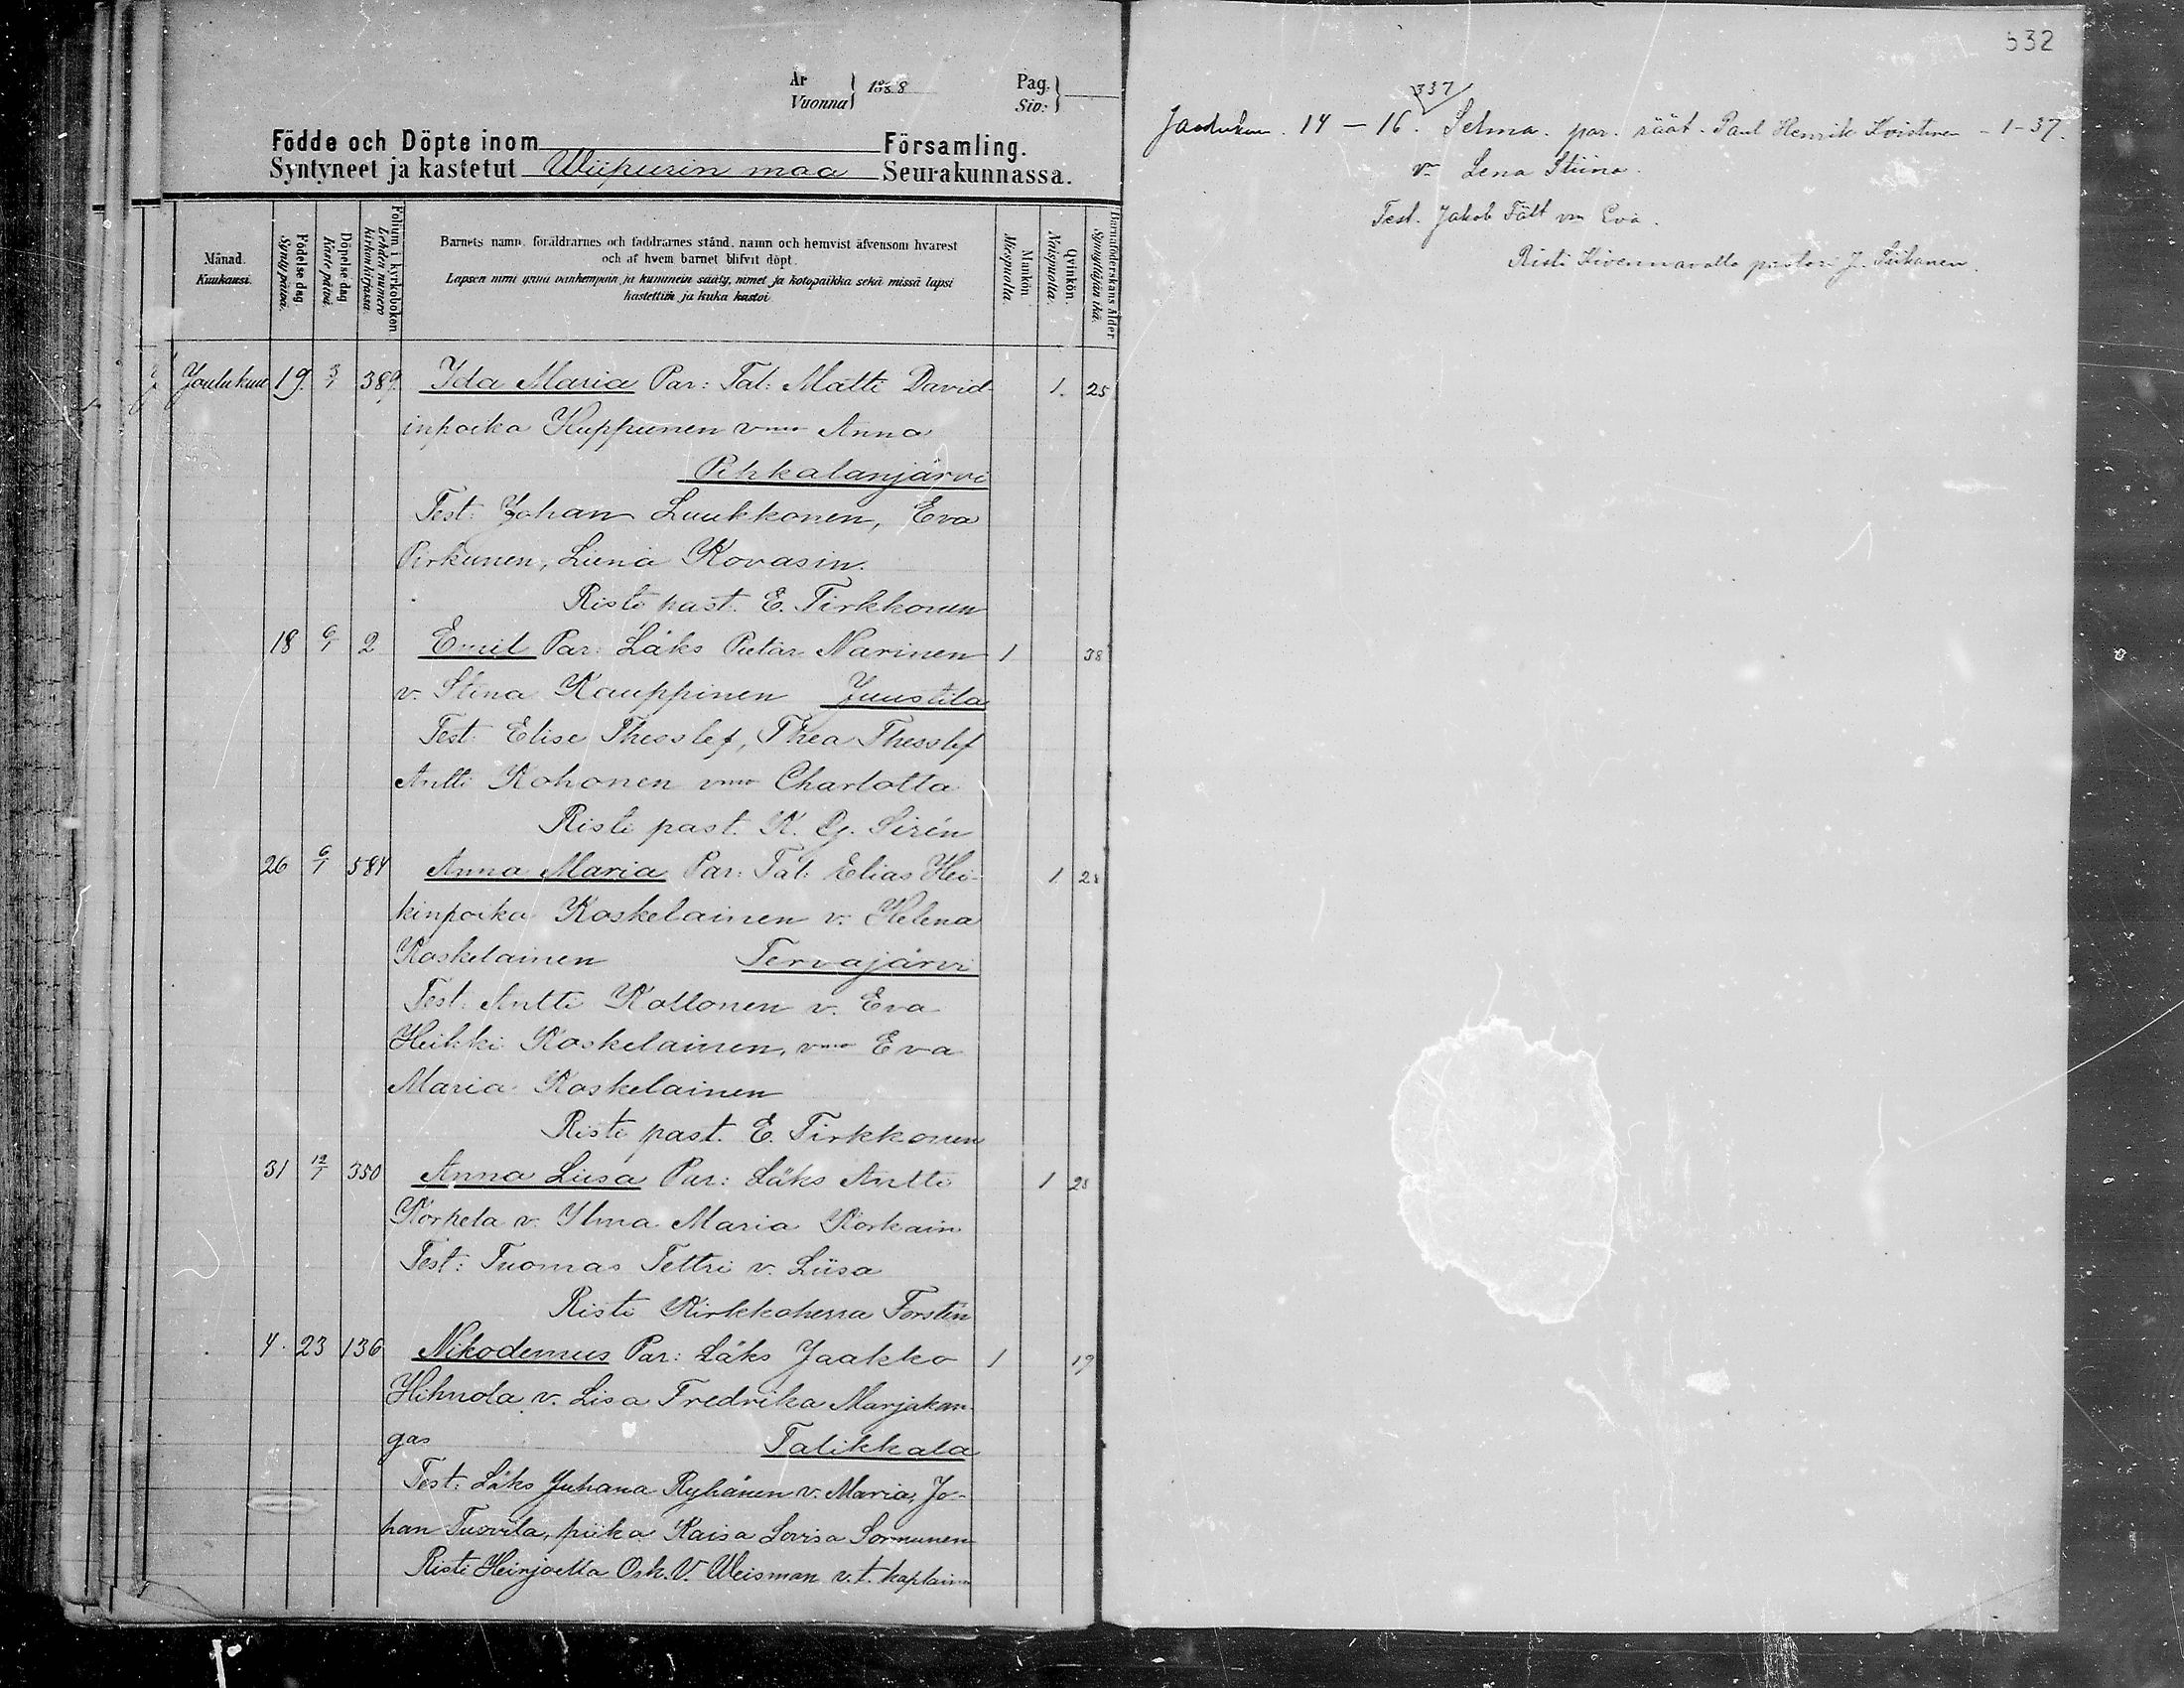 År
Vuonna 1888
Pag.
Siv:
Födde och Döpte inom Församling.
Syntyneet ja kastetut Wiipurin maa Seurakunnassa.
Månad.
Kuukausi.
Födelse dag
Syntymäpäivä.
Döpelse dag
Kaste päivä.
Folium i kyrkoboken
Lehden numero kirkonkirjassa.
Barnets namn, föräldrarnes och faddrarnes stånd, namn och hemvist äfvensom hvarest
och af hvem barnet blifvit döpt.
Lapsen nimi ynnä vanhempain ja kummein sääty, nimet ja kotopaikka sekä missä lapsi
kastettiin ja kuka kastoi.
Mankön
Miespuolia.
Qvinkön.
Naispuolia.
Barnaföderskans ålder
Synnyttäjän ikä.
Joulukuu 19. 3/1 389. Ida Maria Par: Tal: Matti David 1. 25
inpoika Huppunen vmo Anna
Pihkalanjärvi
Test: Johan Luukkonen, Eva
Pirkunen, Liena Kovasin.
Risti past. E. Tirkkonen
18 6/1 2 Emil Par: Läks Pietar Narinen 1 38
v. Stina Kauppinen Juustila
Test: Elise Thesslef, Thea Thesslef
Antti Kohonen vmo Charlotta
Risti past. K. G. Sirén
26 6/1 584 Anna Maria Par: Tal: Elias Hei- 1 28
kinpoika Koskelainen v. Helena
Koskelainen Tervajärvi
Test: Antti Kollonen v. Eva
Heikki Koskelainen, vmo Eva
Maria Koskelainen
Risti past. E. Tirkkonen
31 12/1 350 Anna Liisa Par: Läks Antti 1 28
Korpela v. Ilma Maria Korkain
Test: Tuomas Tettri v. Liisa
Risti Kirkkoherra Forstén
4. 23 136 Nikodemus Par: Läks Jaakko 1 19
Hihnola v. Lisa Fredrika Marjakan
gas Talikkala
Test: Läks Juhana Ryhänen v. Maria, Jo-
han Tuovila, piika Kaisa Lovisa Sormunen
Risti Heinjoella Osk. V. Weisman v.t. kaplain
532
337
Jouluk. 14 – 16. Selma. par. räät. Paul Henrik Kvistinen – 1 – 37.
vm Lena Stiina.
Test. Jakob Fält vm Eva.
Risti Kivennavalla pastori J. Siikanen.